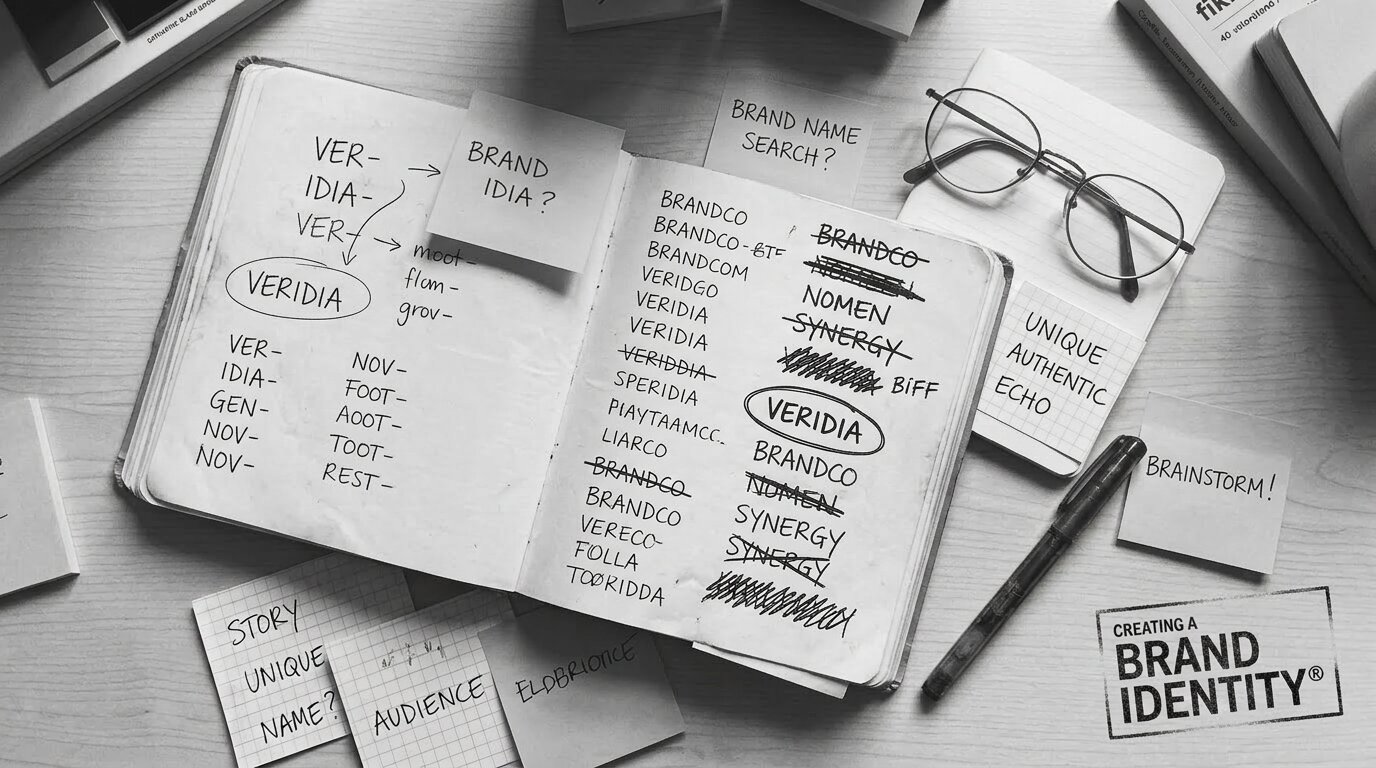 VER-
IDIA-
VER-
VERIDIA
moot-
flom-
grov-
VER-
IDIA-
GEN-
NOV-
NOV-
NOV-
FOOT-
AOOT-
TOOT-
REST-
BRAND
IDIA?
BRAND NAME
SEARCH?
BRANDCO
BRANDCO-
BRANDCOM
VERIDGO
VERIDIA
VERIDIA
VERIDDIA
SPERIDIA
LIARCO
BRANDCO
BRANDCO
VERECO-
FOLLA
TOØRIDDA
BRANDCO
NOMEN
SYNERGY
BiFF
VERIDIA
BRANDCO
NOMEN
SYNERGY
SYNERGY
UNIQUE
AUTHENTIC
ECHO
BRAINSTORM!
STORY
UNIQUE
NAME?
AUDIENCE
CREATING A
BRAND
IDENTITY®